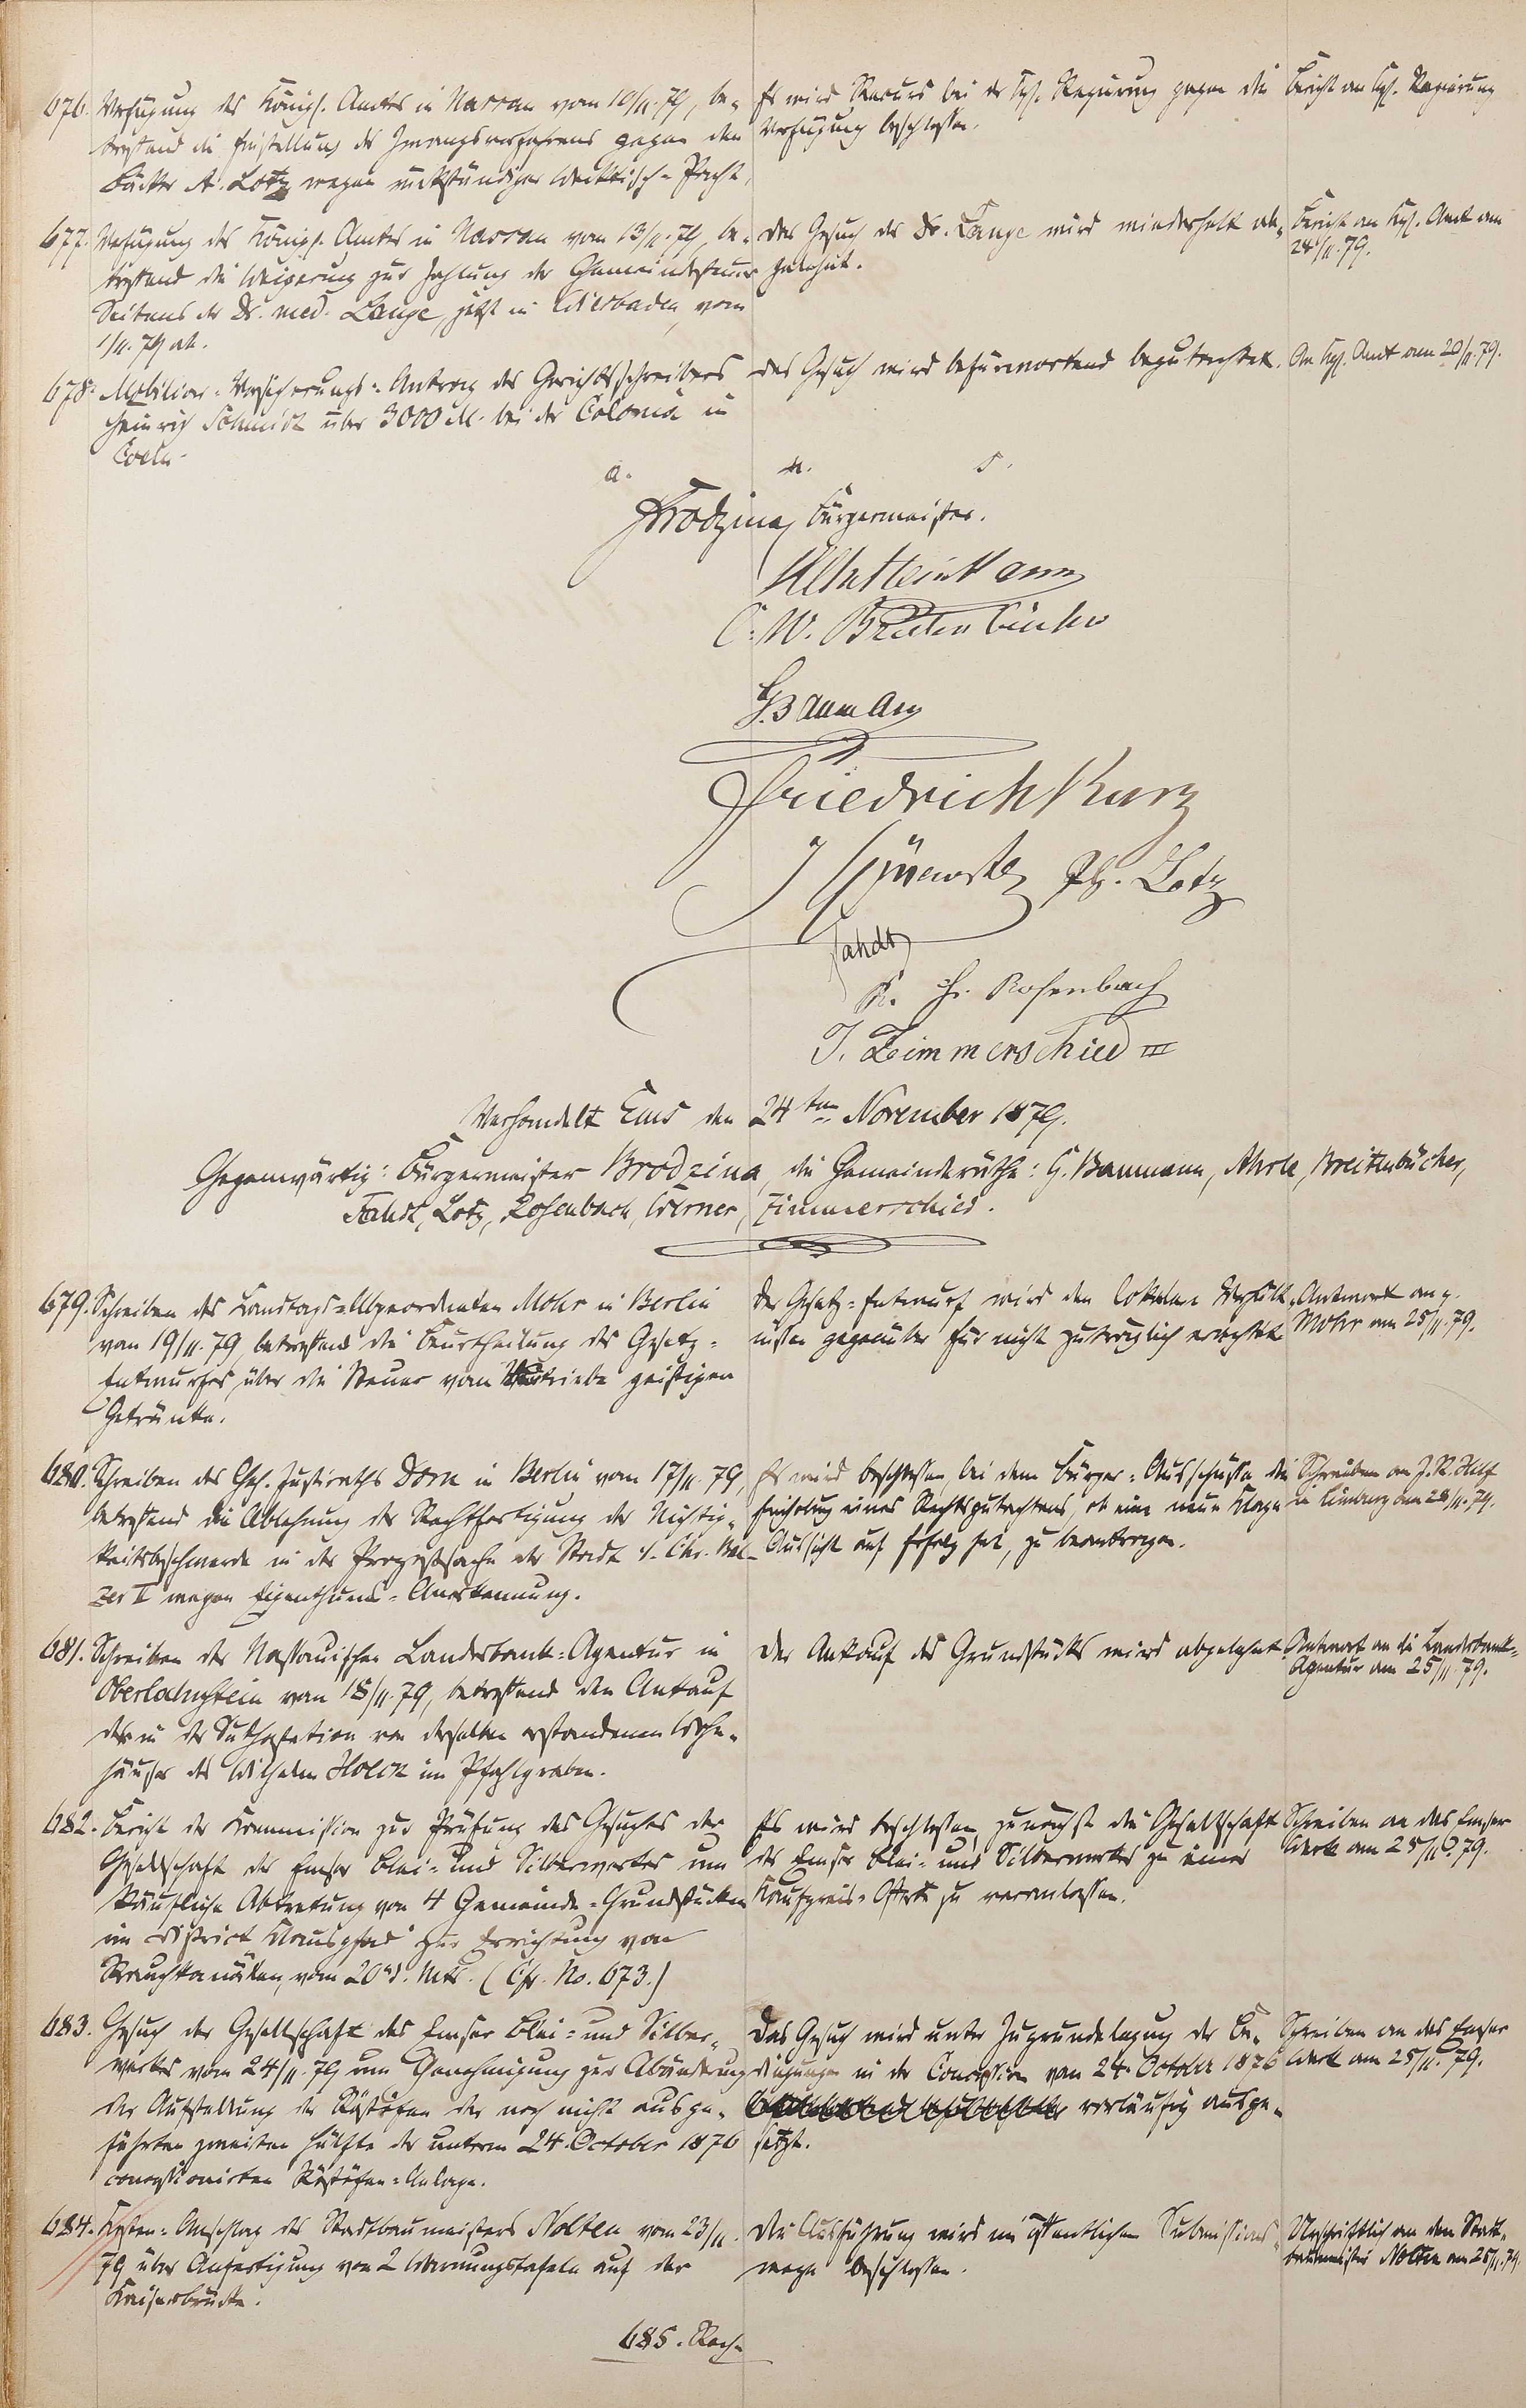 676. Verfügung des Königl. Amtes in Nassau vom 10/11.79, be-
treffend die Einstellung des Zwangsverfahrens gegen den
Bäcker A. Lotz wegen rückständiger Pacht,
Es wird Recurs bei der Kgl. Regierung gegen die
Verfügung beschlossen.
Bericht an Kgl. Regierung
677. Verfügung des Königl. Amtes in Nassau vom 13/11.79, be-
treffend die Weigerung zur Zahlung der Gemeindesteuer
Seitens des Dr. med. Lange, jetzt in Wiesbaden, vom
1/11.79 ab.
Das Gesuch des Dr. Lange wird wiederholt ab-
gelehnt.
Bericht an Kgl. Amt am
24/11.79.
678. Mobiliar-Versicherungs-Antrag des Gerichtsschreibers
Heinrich Schmidt über 3000 M. bei der Colonia in
Coeln.
Das Gesuch wird befürwortend begutachtet.
An Kgl. Amt am 20/11.79.
a. u. s.
Brodzina, Bürgermeister.
C. W. Breitenbücher
G. Baumann
Friedrich Kurz
Ph. Lotz
Fahdt
Rosenbach
J. Zimmerschied III
Verhandelt Ems den 24ten November 1879.
Gegenwärtig: Bürgermeister Brodzina, die Gemeinderäthe: G. Baumann, Ahrle, Breitenbücher,
Fahdt, Lotz, Rosenbach, Werner, Zimmerschied.
679. Schreiben des Landtags-Abgeordneten Mohr in Berlin
vom 19/11.79 betreffend die Beurtheilung des Gesetz-
Entwurfes über die Steuer vom Vertriebe geistigen
Getränke.
Der Gesetz-Entwurf wird den lokalen Verhält-
nissen gegenüber für nicht zuträglich erachtet
Antwort an p.
Mohr am 25/11.79.
680. Schreiben des Geh. Justizraths Dorn in Berlin vom 17/11.79,
betreffend die Ablehnung der Rechtfertigung der Nichtig-
keitsbeschwerde in der Prozeßsache der Stadt ./. Chr. Bal-
zer II wegen Eigenthums-Anerkennung.
Es wird beschlossen, bei dem Bürger-Ausschusse die
Einholung eines Rechtsgutachtens, ob eine neue Klage
Aussicht auf Erfolg hat, zu beantragen.
Schreiben an J. R. Hilf
in Limburg am 28/11.79.
681. Schreiben der Nassauischen Landesbank-Agentur in
Oberlahnstein vom 18/11.79, betreffend den Ankauf
des in der Subhastation von derselben erstandenen Wohn-
hauses des Wilhelm im Pfahlgraben.
Der Ankauf des Grundstücks wird abgelehnt.
Antwort an die Landesbank-
Agentur am 25/11.79.
682. Bericht der Kommission zur Prüfung des Gesuches der
Gesellschaft des Emser Blei- und Silberwerkes um
käufliche Abtretung von 4 Gemeinde-Grundstücken
im District Klauspfad zur Errichtung von
Rauchkanälen, vom 20. d. Mts. (Cfr. No. 673.)
Es wird beschlossen, zunächst die Gesellschaft
des Emser Blei- und Silberwerkes zu einer
Kaufpreis-Offerte zu veranlassen.
Schreiben an das Emser
Werk am 25/11.79.
683. Gesuch der Gesellschaft des Emser Blei- und Silber-
werkes vom 24/11.79 um Genehmigung zur Abänderung
der Aufstellung der Röstöfen der noch nicht ausge-
führten zweiten Hälfte der unterm 24. October 1876
concessionirten Röstöfen-Anlage.
Das Gesuch wird unter Zugrundelegung der Be-
dingungen in der Concession vom 24. October 1876
vorläufig ausge-
setzt.
Schreiben an das Emser
Werk am 25/11.79.
684. Kosten-Anschlag des Stadtbaumeisters Nolten vom 23/11.
79 über Anfertigung von 2 Warnungstafeln auf der
Kaiserbrücke.
Die Ausführung wird im öffentlichen Submissions-
wege beschlossen.
Urschriftlich an den Stadt-
baumeister Nolten am 25/11.79.
685. Rech-